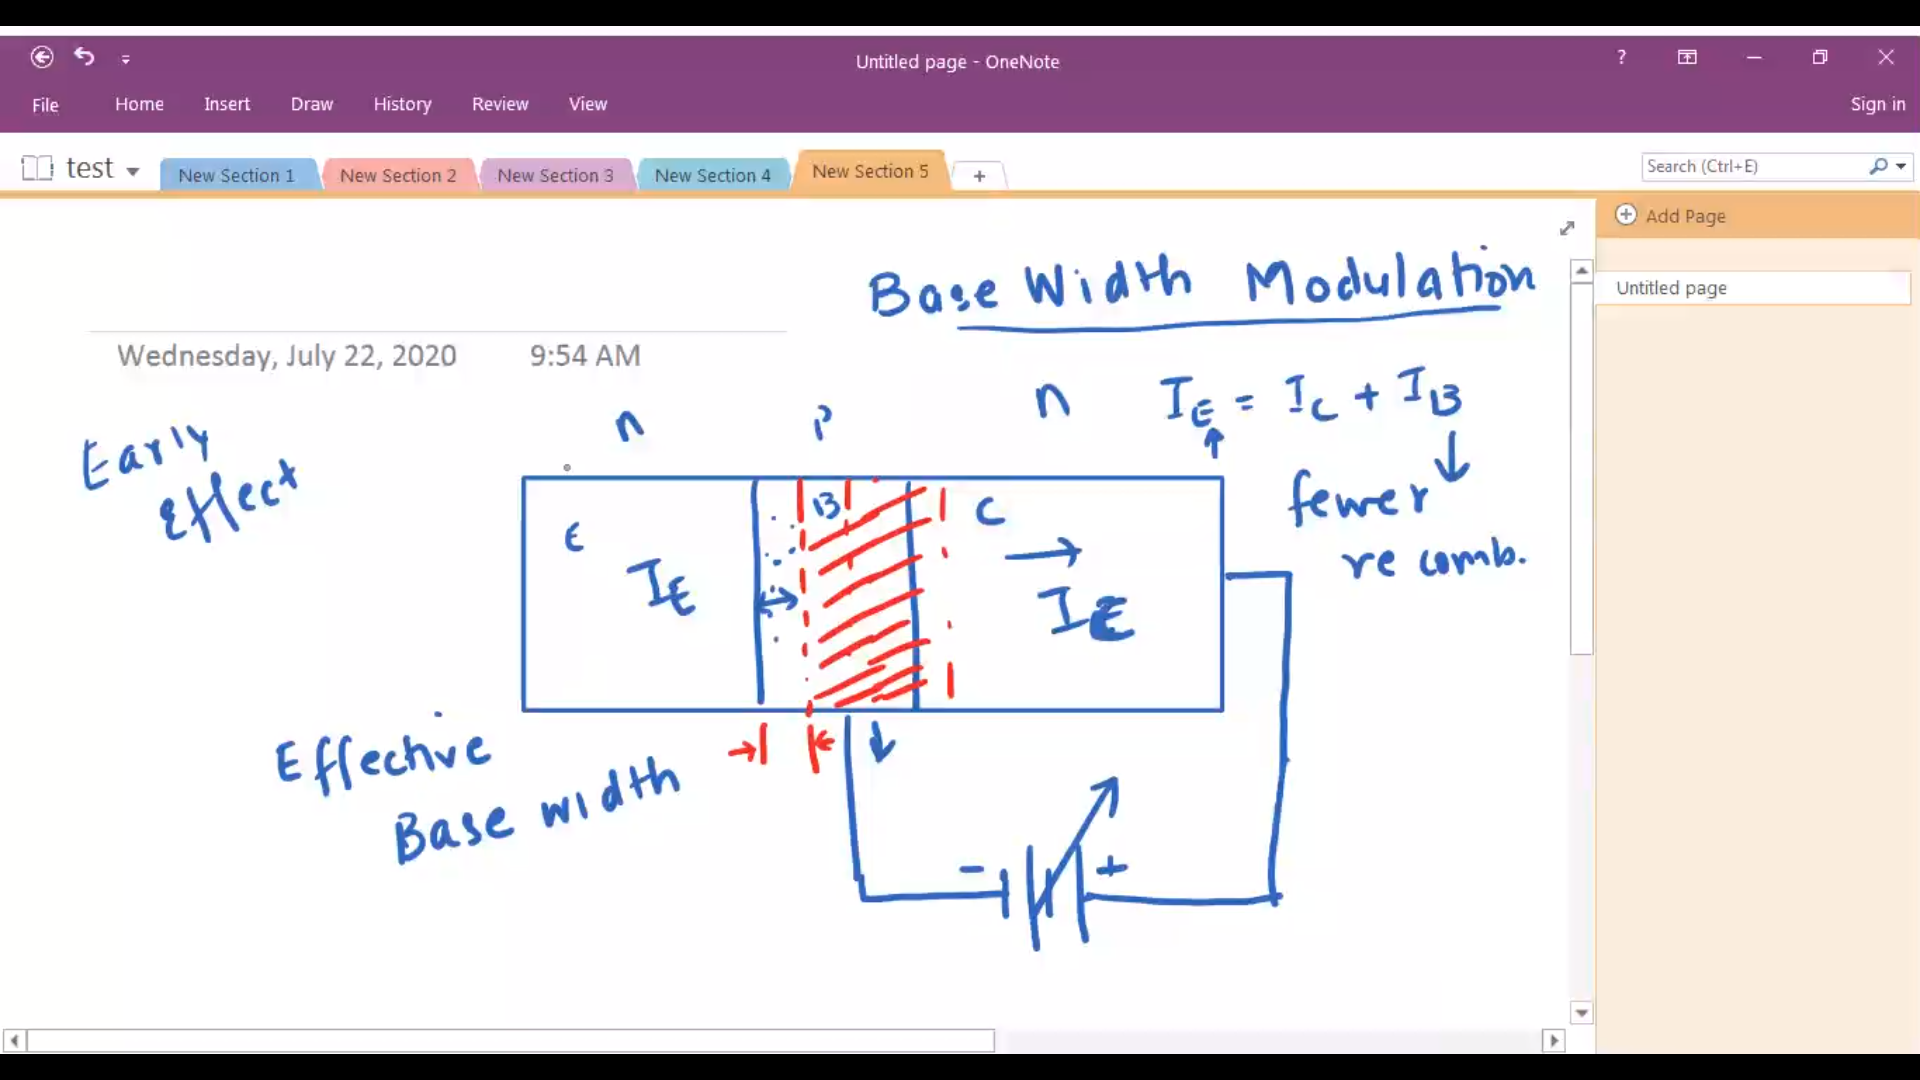 Untitled page - OneNote
?
File Home Insert Draw History Review View
Sign in
test New Section 1 New Section 2 New Section 3 New Section 4 New Section 5 +
Search (Ctrl+E)
Add Page
Untitled page
Base Width Modulation
Wednesday, July 22, 2020 9:54 AM
I_E = I_C + I_B
n P n
Early
Effect
fewer
recomb.
E B C
I_E I_E
Effective
Base width
- +